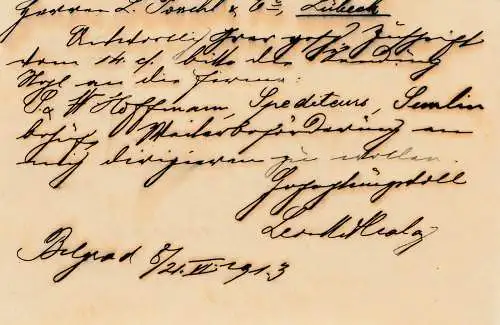 Herren L. Possehl & Co, Lübeck
Antwortlich Ihrer gesch. Zuschrift
vom 14 cj. bitte die Sendung
Stahl an die Firma:
P. & W Hoffmann, Spediteurs, Semlin
behufs Weiterbeförderung an
mich dirigieren zu wollen.
Hochachtungsvoll
Belgrad 8/21. VI. 1913